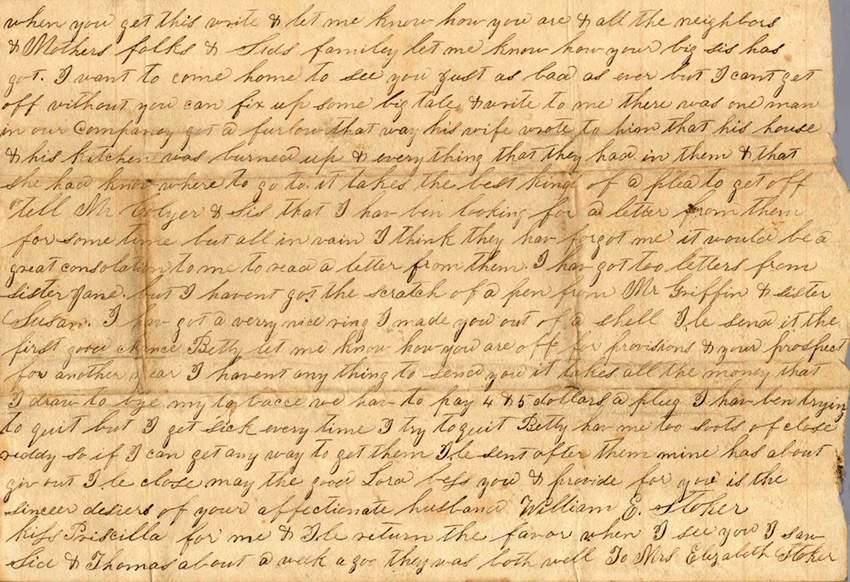 when you get this write & let me know how you are & all the neighbors
& Mothers folks & Sids familey let me know how your big sis has
got. I want to come home to see you just as bad as ever but I cant get
off without you can fix up some big tale & write to me there was one man
in our Companey got a furlow that way his wife wrote to him that his house
& his kitchen was burned up & everything that they had in them & that
she had know where to go to. it takes the best kind of a plea to get off
Tell Mr Colyer & Sis that I hav ben looking for a letter from them
for some time but all in vain I think they hav forgot me it would be a
great consolation to me to read a letter from them. I hav got too letters from
sister Jane. but I havent got the scratch of a pen from Mr Griffin & sister
Susan. I hav got a verry nice ring I made you out of a shell I,le send it the
first good chance Betty let me know how you are off for provisions & your prospect
for another year I havent any thing to send you it takes all the money that
I draw to bye my to bacco we hav to pay 4 & 5 dollars a plug I hav ben tryin
to quit but I get sick every time I try to quit Betty hav me too soots of close
reddy so if I can get any way to get them I,le sent after them mine has about
giv out I,le close may the good Lord bless you & provide for you is the
sinceer desiers of your affectionate husband William E. Stoker
kiss Priscilla for me & I,le return the favor when I see you I saw
Sid & Thomas about a week a goe they was both well To Mrs Elizabeth Stoker